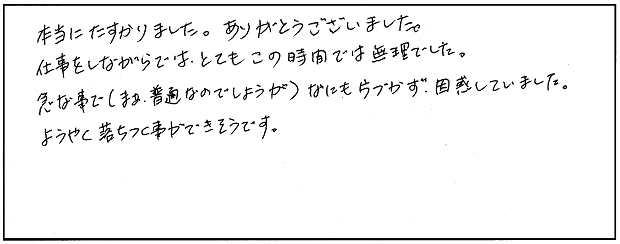 本当にたすかりました。ありがとうございました。
仕事をしながらでは、とてもこの時間では無理でした。
急な事で(まぁ、普通なのでしょうが)なにも片づかず、困惑していました。
ようやく落ちつく事ができそうです。